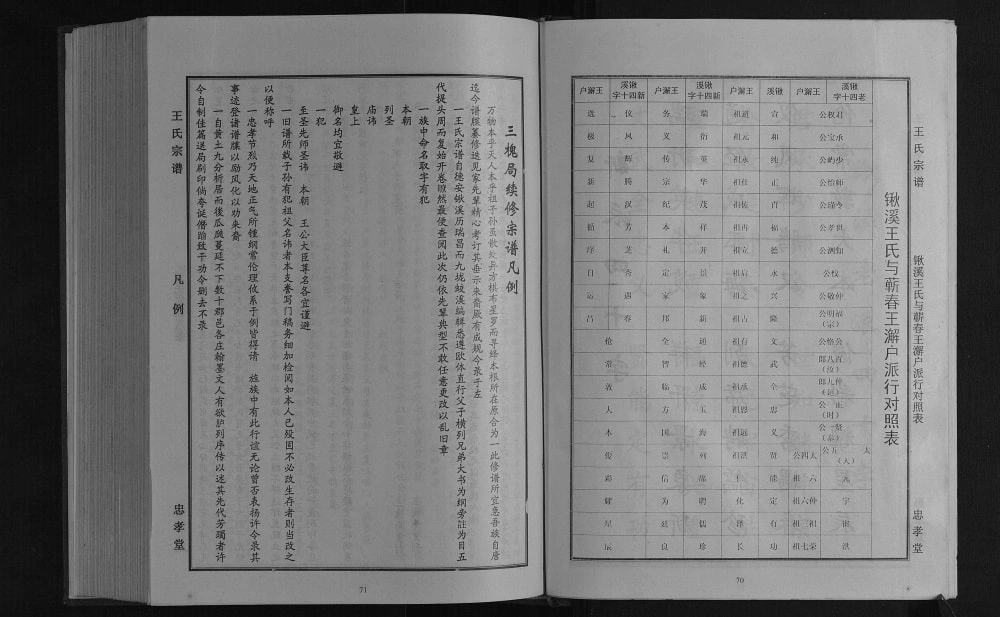 王氏宗谱
锹溪王氏与蕲春王澥户派行对照表
忠孝堂
锹溪王氏与蕲春王澥户派行对照表
锹溪老四十字 王澥户 锹溪 王澥户 锹溪新四十字 王澥户 锹溪新四十字 王澥户
君权公 宣 道祖 瑞 务 仪 选
承宝公 和 元祖 衍 义 风 极
少屿公 纯 永祖 英 传 辉 复
师怡公 正 仕祖 华 宗 腾 新
令瑶公 百 传祖 茂 纪 汉 起
世孝公 福 再祖 祥 本 芳
知泗公 德 立祖 开 礼 芝 序
权公 永 启祖 景 定 香 自
仲敬公 兴 之祖 象 家 遇 运
福明公(宗) 隆 古祖 新 邦 春 昌
公恪公 文 有祖 通 全 伦
八百郎(汝) 武 德祖 经 智 常
仲九郎(廷) 全 承祖 成 临 敦
正公(时) 忠 恩祖 玉 方 人
贤一公(泰) 义 远祖 海 国 本
太五公(大) 太四公 贤 洪祖 列 崇 俊
元 六二祖 能 仁 信 彩
字 仲六祖 定 化 聘 为 耀
三祖 有 泽 儒 廷 星
洪 荣七祖 功 长 珍 良 辰
70
三槐局续修宗谱凡例
万物本乎天人本乎祖子孙虽散处异方棋布星罗而寻绎本根所在原合为一此修谱所宜急吾族自唐
迄今谱牒纂修迭见家先辈精心考订其垂示来裔厥有成规今录于左
一王氏宗谱自德安锹溪历瑞昌而九垅蛟溪编辑悉遵欧体直行父子横列兄弟大书为纲旁註为目五
代提头周而复始开卷瞭然最便查阅此次仍依先辈典型不敢任意更改以乱旧章
一族中命名取字有犯
本朝
列圣
庙讳
皇上
御名均宜敬避
一犯
至圣先师圣讳　本朝　王公大臣尊名各宜谨避
一旧谱所载子孙有犯祖父名讳者本支眷写门稿务细加检阅如本人已殁固不必改生存者则当改之
以便称呼
一忠孝节烈乃天地正气所锺纲常伦理攸系于例皆得请　旌族中有此行谊无论曾否表扬许今录其
事迹登诸谱牒以励风化以劝来裔
一自黄土九分析居而後瓜瓞蔓延不下数十郡邑各庄翰墨文人有欲胪列序传以述其先代芳躅者许
今自制佳篇送局刷印倘夸诞僭踰致干功令删去不录
王氏宗谱
凡例
忠孝堂
71